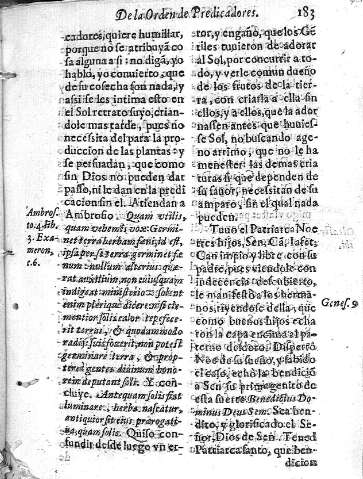 De la Orden de Predicadores. 183
cadores, quiere humillar,
porque no se atribuyã co
sa alguna a si : no digã, yo
hablò, yo conuierto, que
de su cosecha son nada, y
assi se les intima esto en
el Sol retrato suyo, crian-
dole mas tarde, pues no
necessita del para la pro-
duccion de las plantas y
se persuadan, que como
sin Dios no pueden dar
passo, ni le dan en la predi
cacion sin el. Atiendan a
Ambrosio. Quam vilis,
quam vehemẽs vox: Germi
net terra herbam fæni, id est,
ipsa per se terra germinet fæ
num nullum alterius quæ-
rat auxilium, non
indigeat ministerio solent
enim plerique dicere nisi cle-
mentior solis calor tepefece-
rit terras, & quodammodo
radijs suis fouerit, non potest
germinare terra, & prop-
terea gentes diuinum hono-
rem deputant soli. Y con-
cluye. Antequam solis fiat
luminare, herba nascatur,
antiquior sit eius prærogati-
ua, quam solis. Quiso con-
fundir desde luego vn er-
Ambros.
to. 4. lib.
3. Exa-
meron,
c. 6.
ror, y engaño, que los Gẽ
tiles tuuieron de adorar
al Sol, por concurrir a to-
do, y verle como dueño
de los frutos de la tier-
ra, con criarla a ella sin
ellos, y a ellos, que la ador
nassen antes que huuies-
se Sol, no buscando age-
no arrimo, que no le ha
menester: las demas cria
turas si que dependen de
su fauor, necessitan de su
amparo, sin el qual nada
pueden.
Tuuo el Patriarca Noe
tres hijos, Sen, Cã, Iafet,
Can impio y libre con su
padre, pues viendole con
indecencia descubierto,
le manifiesta a los herma-
nos, riyendose della, que
como buenos hijos echa
ron la capa encima al pa-
terno desdoro. Desperto
Noe de su sueño, y sabido
el caso, echò la bendiciõ
a Sen su primogenito de
esta suerte Benedictus Do-
minus Deus Sem. Sea ben-
dito, y glorificado el Se-
ñor, Dios de Sen. Tened
Patriarca santo, que ben-
dicion
Genes. 9.